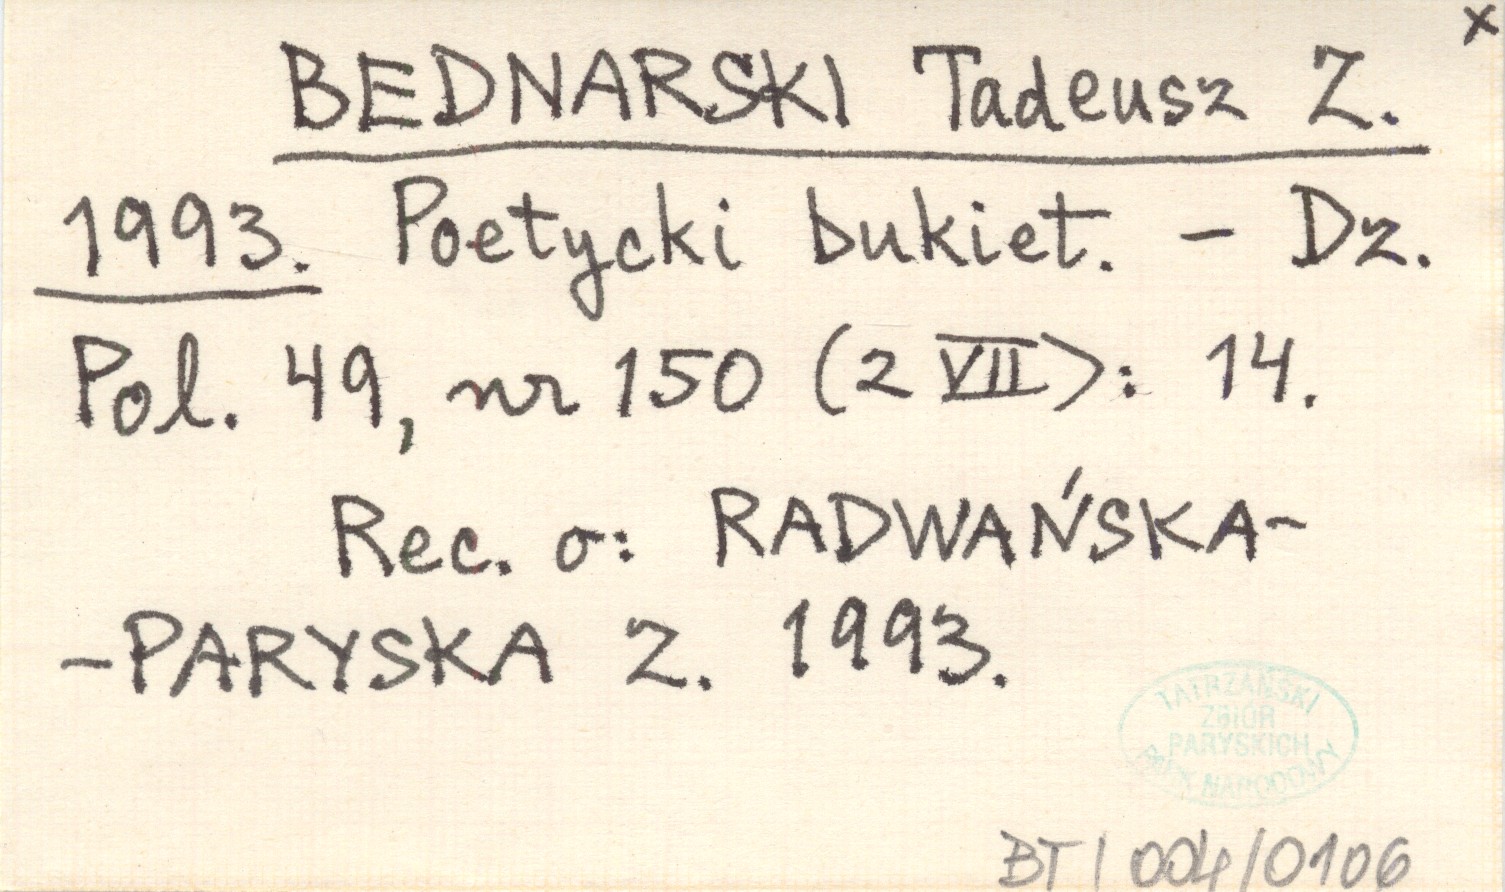 x
BEDNARSKI Tadeusz Z.
1993. Poetycki bukiet. - Dz.
Pol. 49, nr 150 (2 VII): 14.
Rec. o: RADWAŃSKA-
-PARYSKA Z. 1993.
TATRZAŃSKI
ZBIÓR
PARYSKICH
PARK NARODOWY
BT / 004/0106